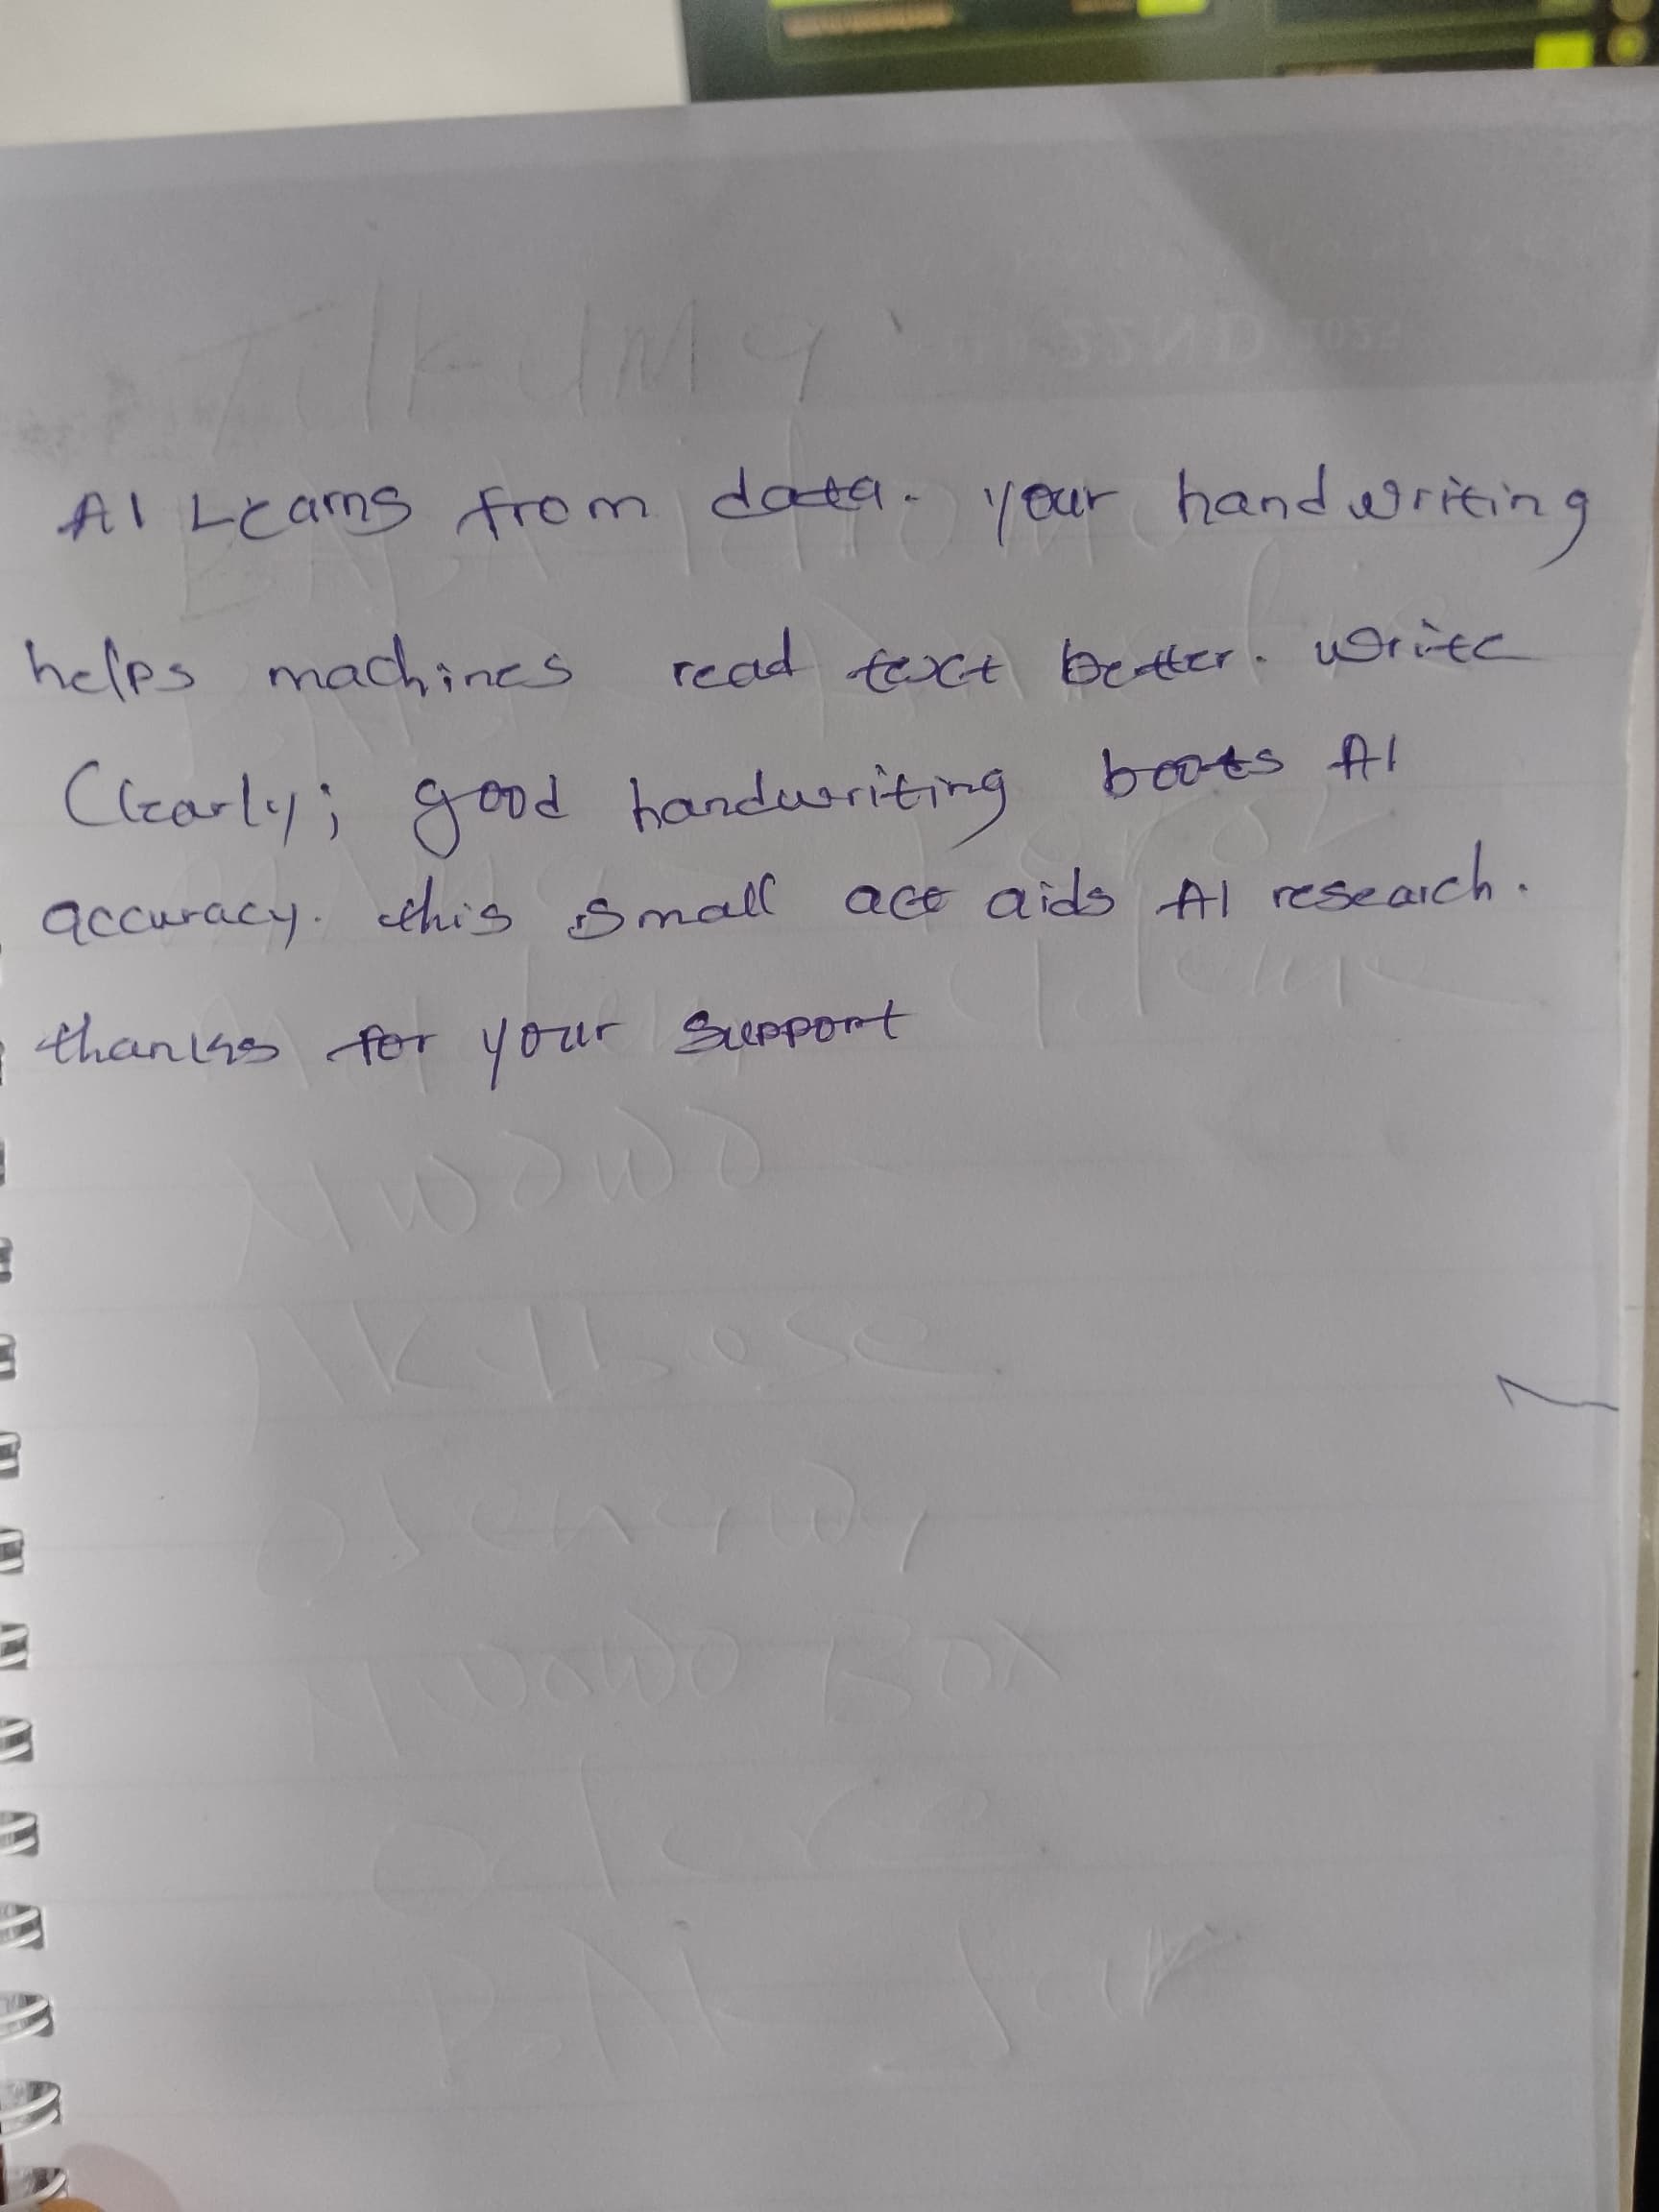 AI Learns from data. your handwriting
helps machines read text better. write
Clearly; good handwriting boots AI
accuracy. this small act aids AI research.
thanks for your support